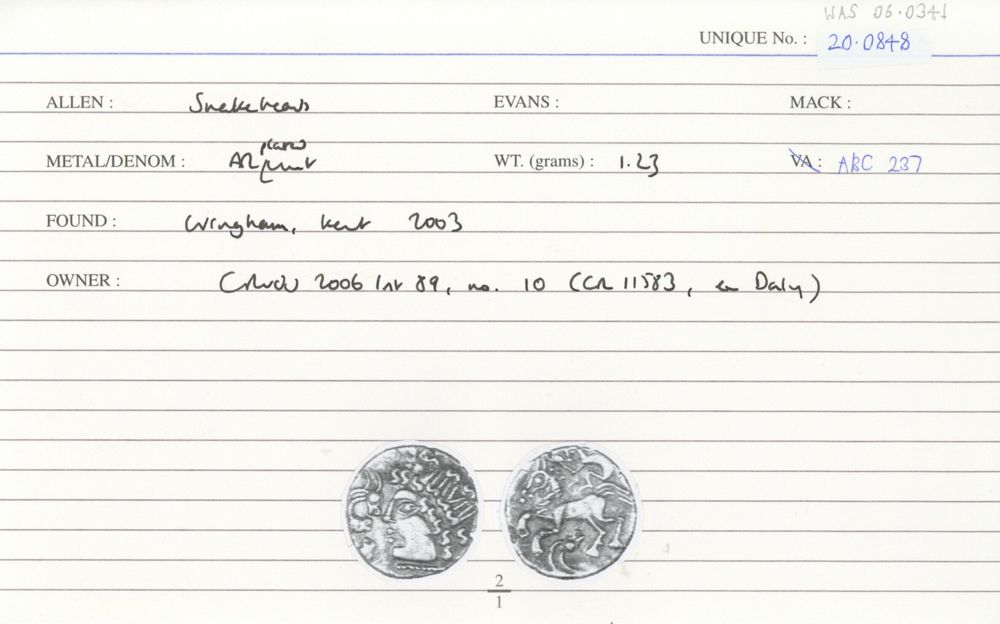 WAS 06.0341
UNIQUE No. : 20.0848
ALLEN : Snakeheads EVANS : MACK :
plated
METAL/DENOM : AR unit WT. (grams) : 1.23 VA : ABC 237
FOUND : Wingham, Kent 2003
OWNER : 2006 Inv 89, no. 10 (CR 11583, ex Daly)
2
1